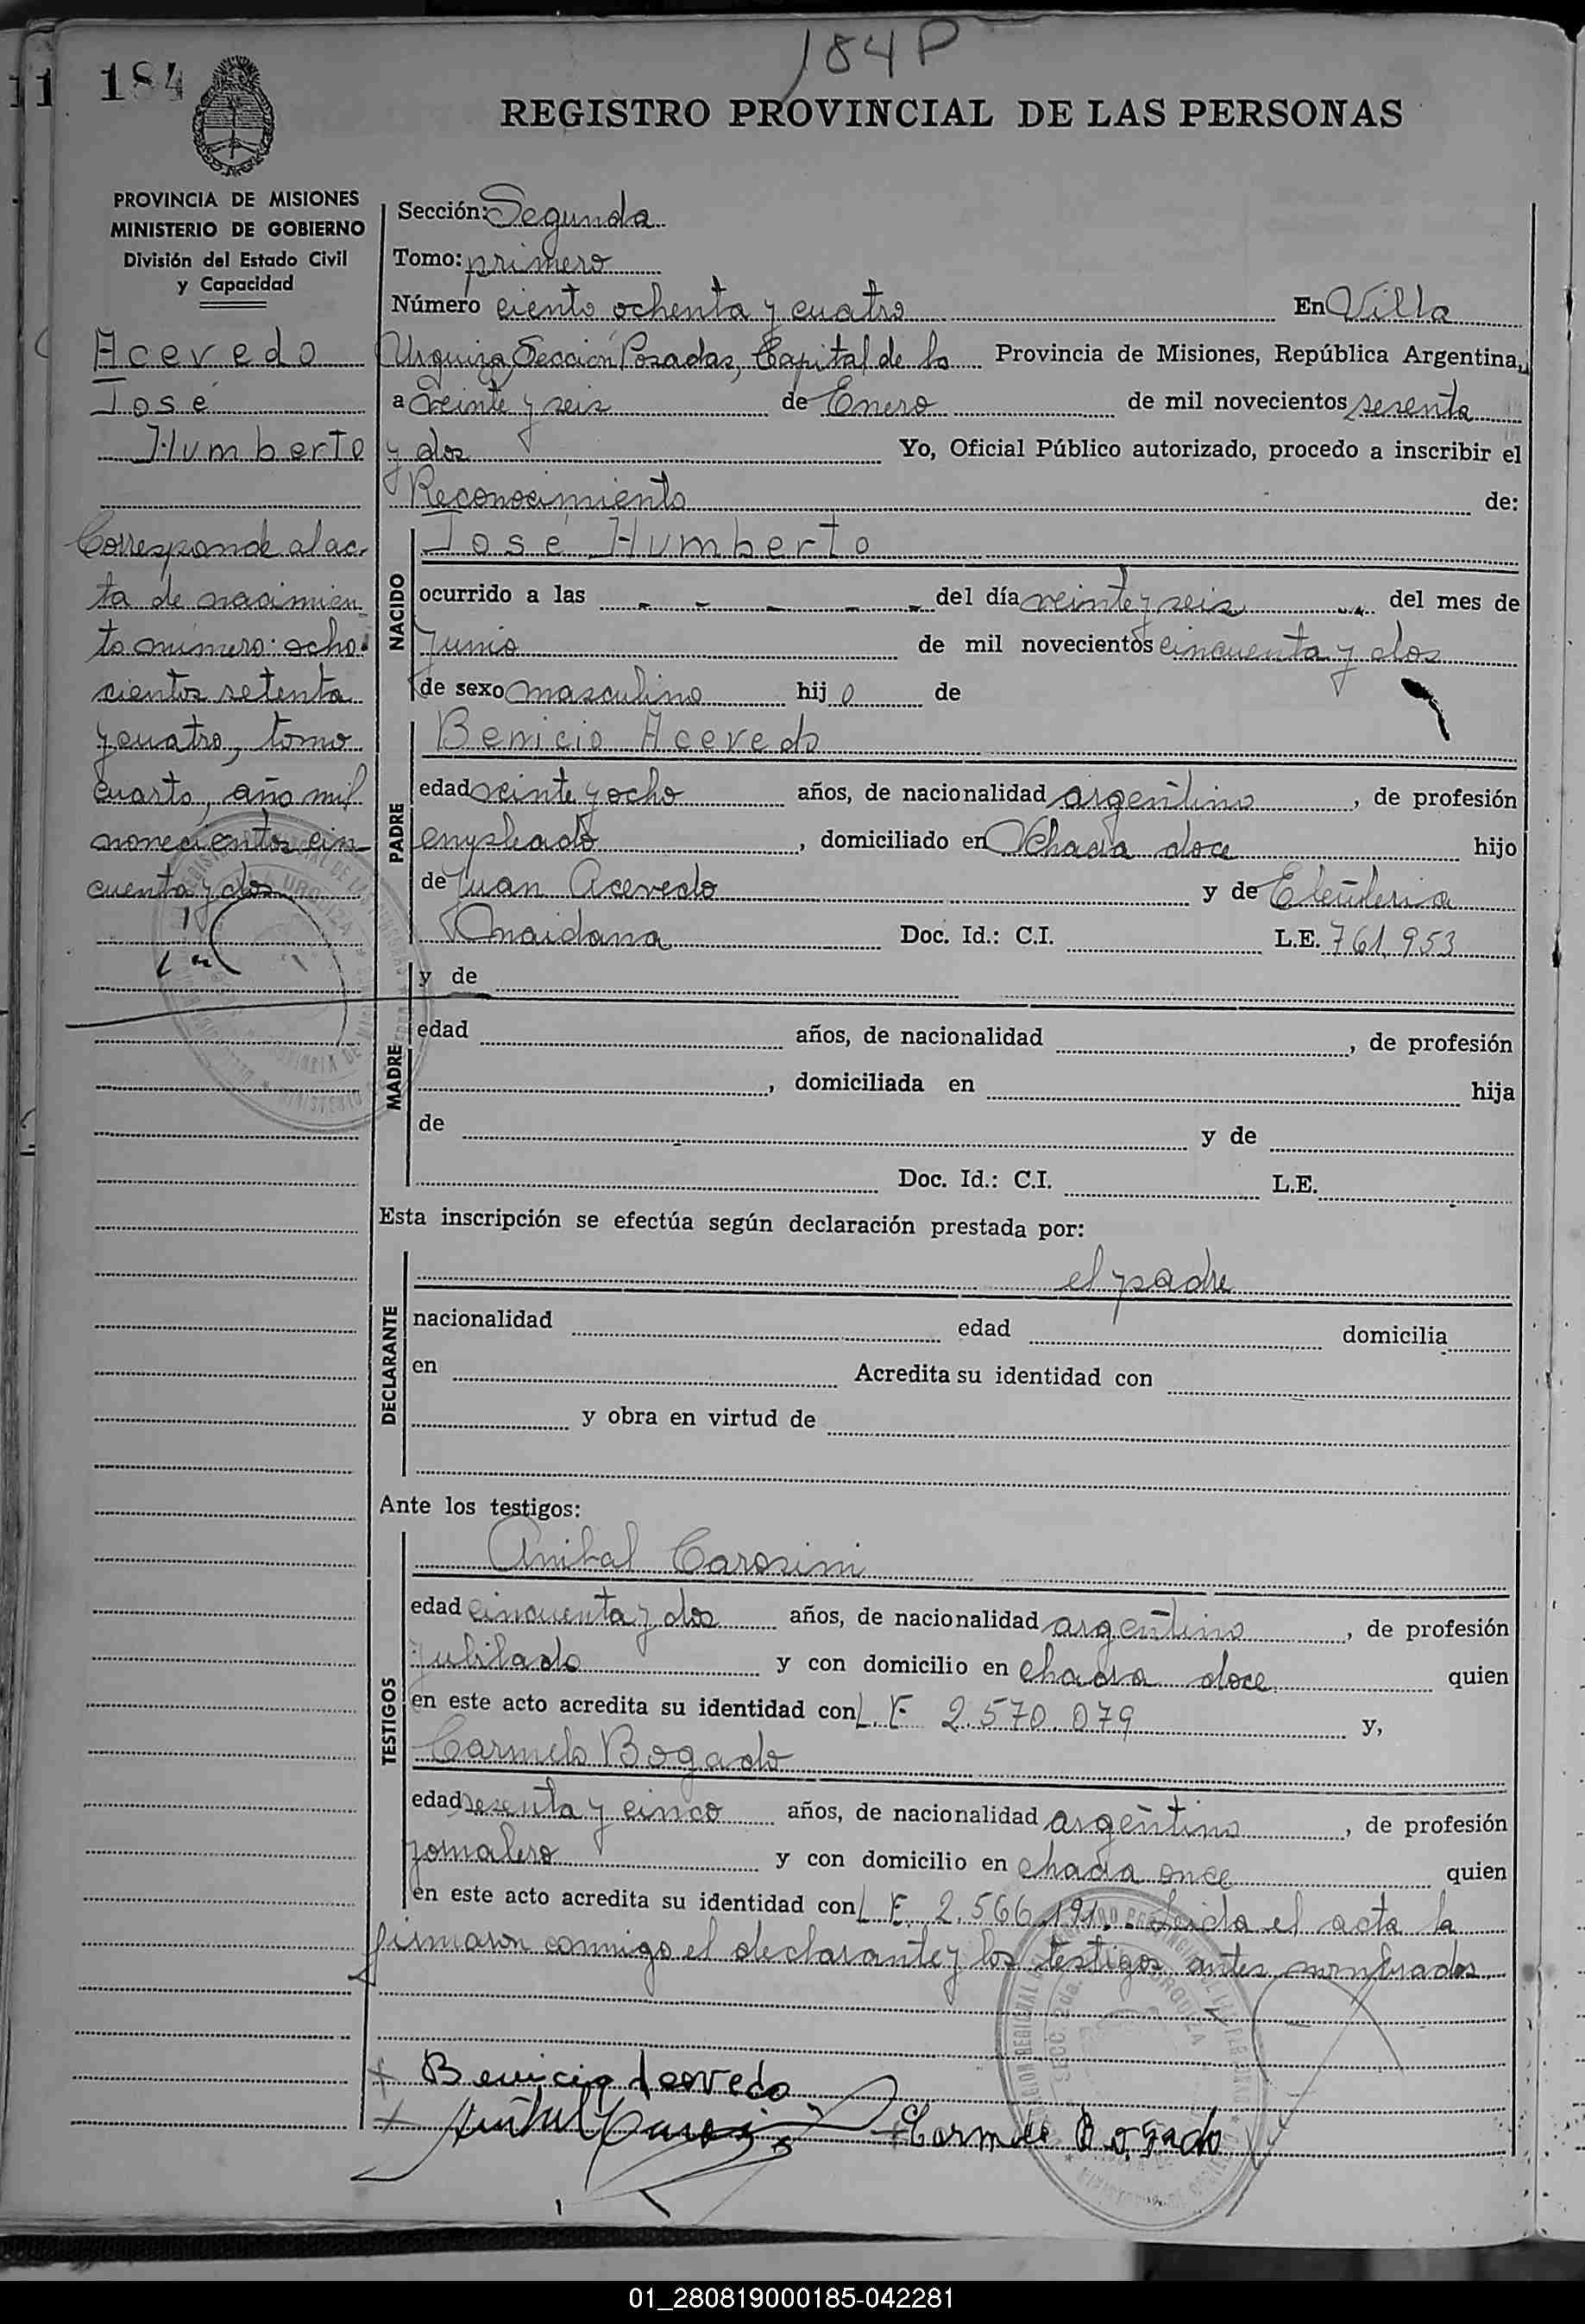 184 P
11 184
REGISTRO PROVINCIAL DE LAS PERSONAS
PROVINCIA DE MISIONES
MINISTERIO DE GOBIERNO
División del Estado Civil
y Capacidad
Acevedo
José
Humberto
Corresponde al ac-
ta de nacimien
to número: ocho
cientos setenta
y cuatro, tomo
cuarto, año mil
novecientos cin-
cuenta y dos
Sección: Segunda
Tomo: primero
Número ciento ochenta y cuatro En Villa
Urquiza, Sección Posadas, Capital de la Provincia de Misiones, República Argentina,
a veinte y seis de Enero de mil novecientos sesenta
y dos Yo, Oficial Público autorizado, procedo a inscribir el
Reconocimiento de:
NACIDO
José Humberto
ocurrido a las - - - - - del día veinte y seis del mes de
Junio de mil novecientos cincuenta y dos
de sexo masculino hijo de
PADRE
Benicio Acevedo
edad veinte y ocho años, de nacionalidad argentino, de profesión
empleado, domiciliado en Chacra doce hijo
de Juan Acevedo y de Eleuteria
Maidana Doc. Id.: C.I. L.E. 761,953
MADRE
y de
edad años, de nacionalidad , de profesión
, domiciliada en hija
de y de
Doc. Id.: C.I. L.E.
Esta inscripción se efectúa según declaración prestada por:
DECLARANTE
el padre
nacionalidad edad domicilia
en Acredita su identidad con
y obra en virtud de
Ante los testigos:
TESTIGOS
Anibal Carosini
edad cincuenta y dos años, de nacionalidad argentino, de profesión
Jubilado y con domicilio en chacra doce quien
en este acto acredita su identidad con L.E. 2.570.079 y,
Carmelo Bogado
edad sesenta y cinco años, de nacionalidad argentino, de profesión
jornalero y con domicilio en chacra once quien
en este acto acredita su identidad con L.E. 2.566.191. Leida el acta la
firmaron conmigo el declarante y los testigos antes nombrados
Benicio Acevedo
Carmelo Bogado
01_280819000185-042281